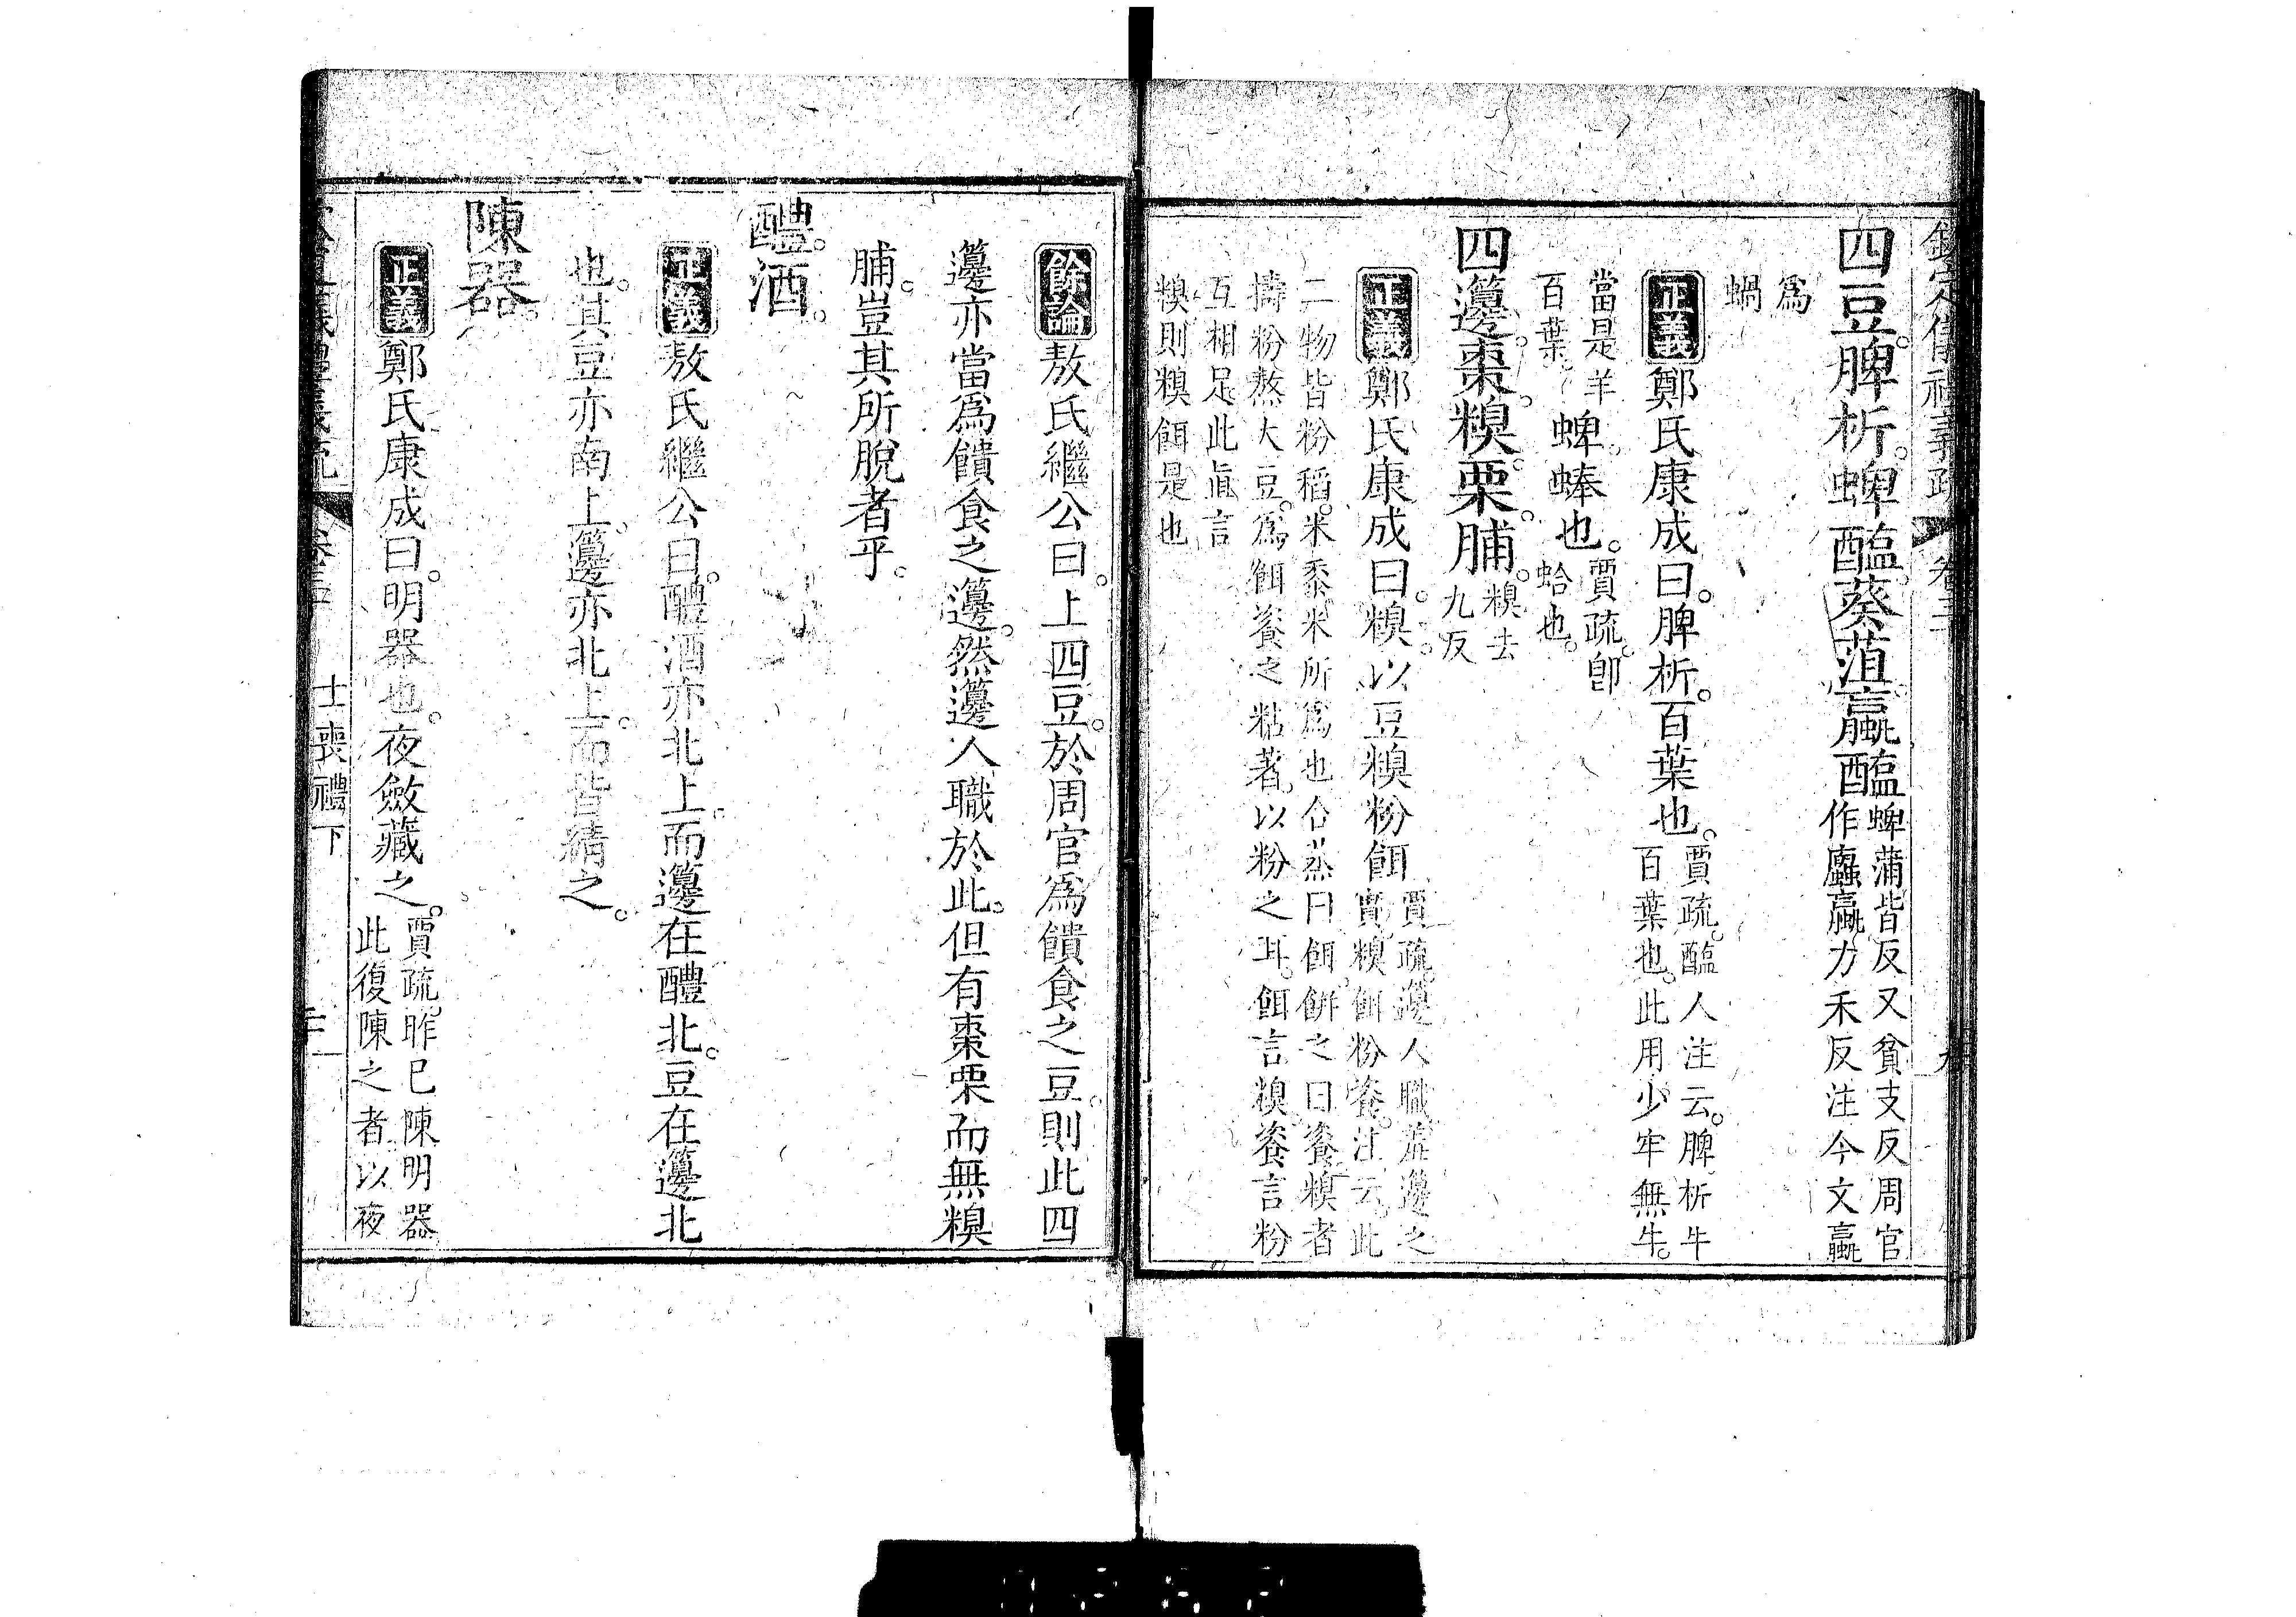 欽定儀禮義疏　卷三
四豆。脾析。蜱醢。葵菹。蠃醢蜱蒲皆反又貧支反周官
作蠯蠃力禾反注今文蠃
爲
蝸
正義鄭氏康成曰。脾析。百葉也。賈疏。醢人注云。脾析牛
百葉也。此用少牢無牛。
當是羊
百葉。蜱。蜯也。賈疏。卽
蛤也。
四籩。棗。糗。栗。脯。糗去
九反
正義鄭氏康成曰。糗。以豆糗粉餌賈疏。籩人職羞籩之
實。糗餌粉餈。注云。此
二物皆粉稻。米黍米所爲也合蒸曰餌。餅之曰餈。糗者
擣粉熬大豆。爲餌餈之粘著。以粉之耳。餌言糗。餈言粉
互相足此眞言
糗則糗餌是也
餘論敖氏繼公曰。上四豆。於周官爲饋食之豆。則此四
籩亦當爲饋食之籩。然籩人職於此。但有棗栗而無糗
脯。豈其所脫者乎。
醴。酒。
正義敖氏繼公曰。醴酒亦北上。而籩在醴北。豆在籩北
也。其豆亦南上。籩亦北上。而皆綪之。
陳器。
正義鄭氏康成曰。明器也。夜斂藏之。賈疏。昨已陳明器
此復陳之者以夜
士喪禮下